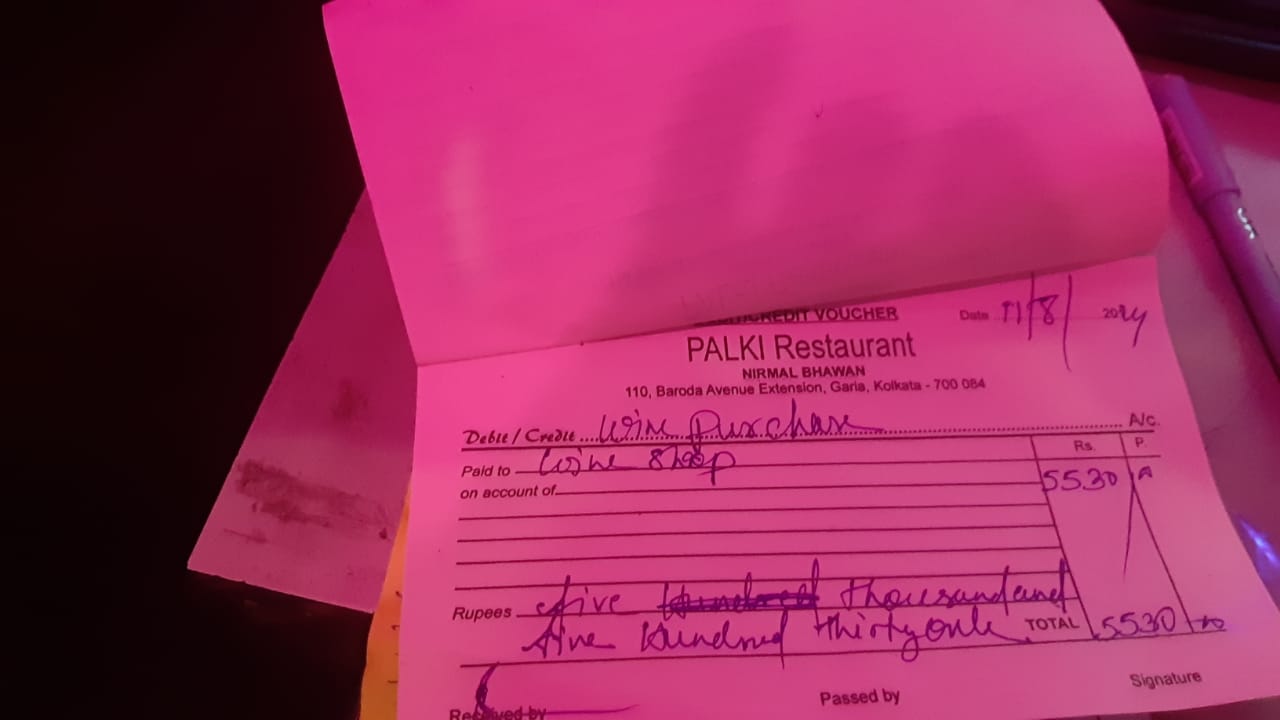 CREDIT VOUCHER
Date 11/8/ 2024
PALKI Restaurant
NIRMAL BHAWAN
110, Baroda Avenue Extension, Garia, Kolkata - 700 084
Debit / Credit Wine Purchase A/c.
Paid to Wine Shop Rs. P.
on account of 5530
Rupees five hundred thousand and
five hundred thirty only TOTAL 5530
Received by Passed by Signature